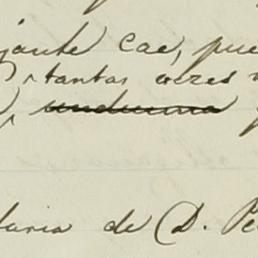 jante cae, pue
tantas veces
daria de D. Pe